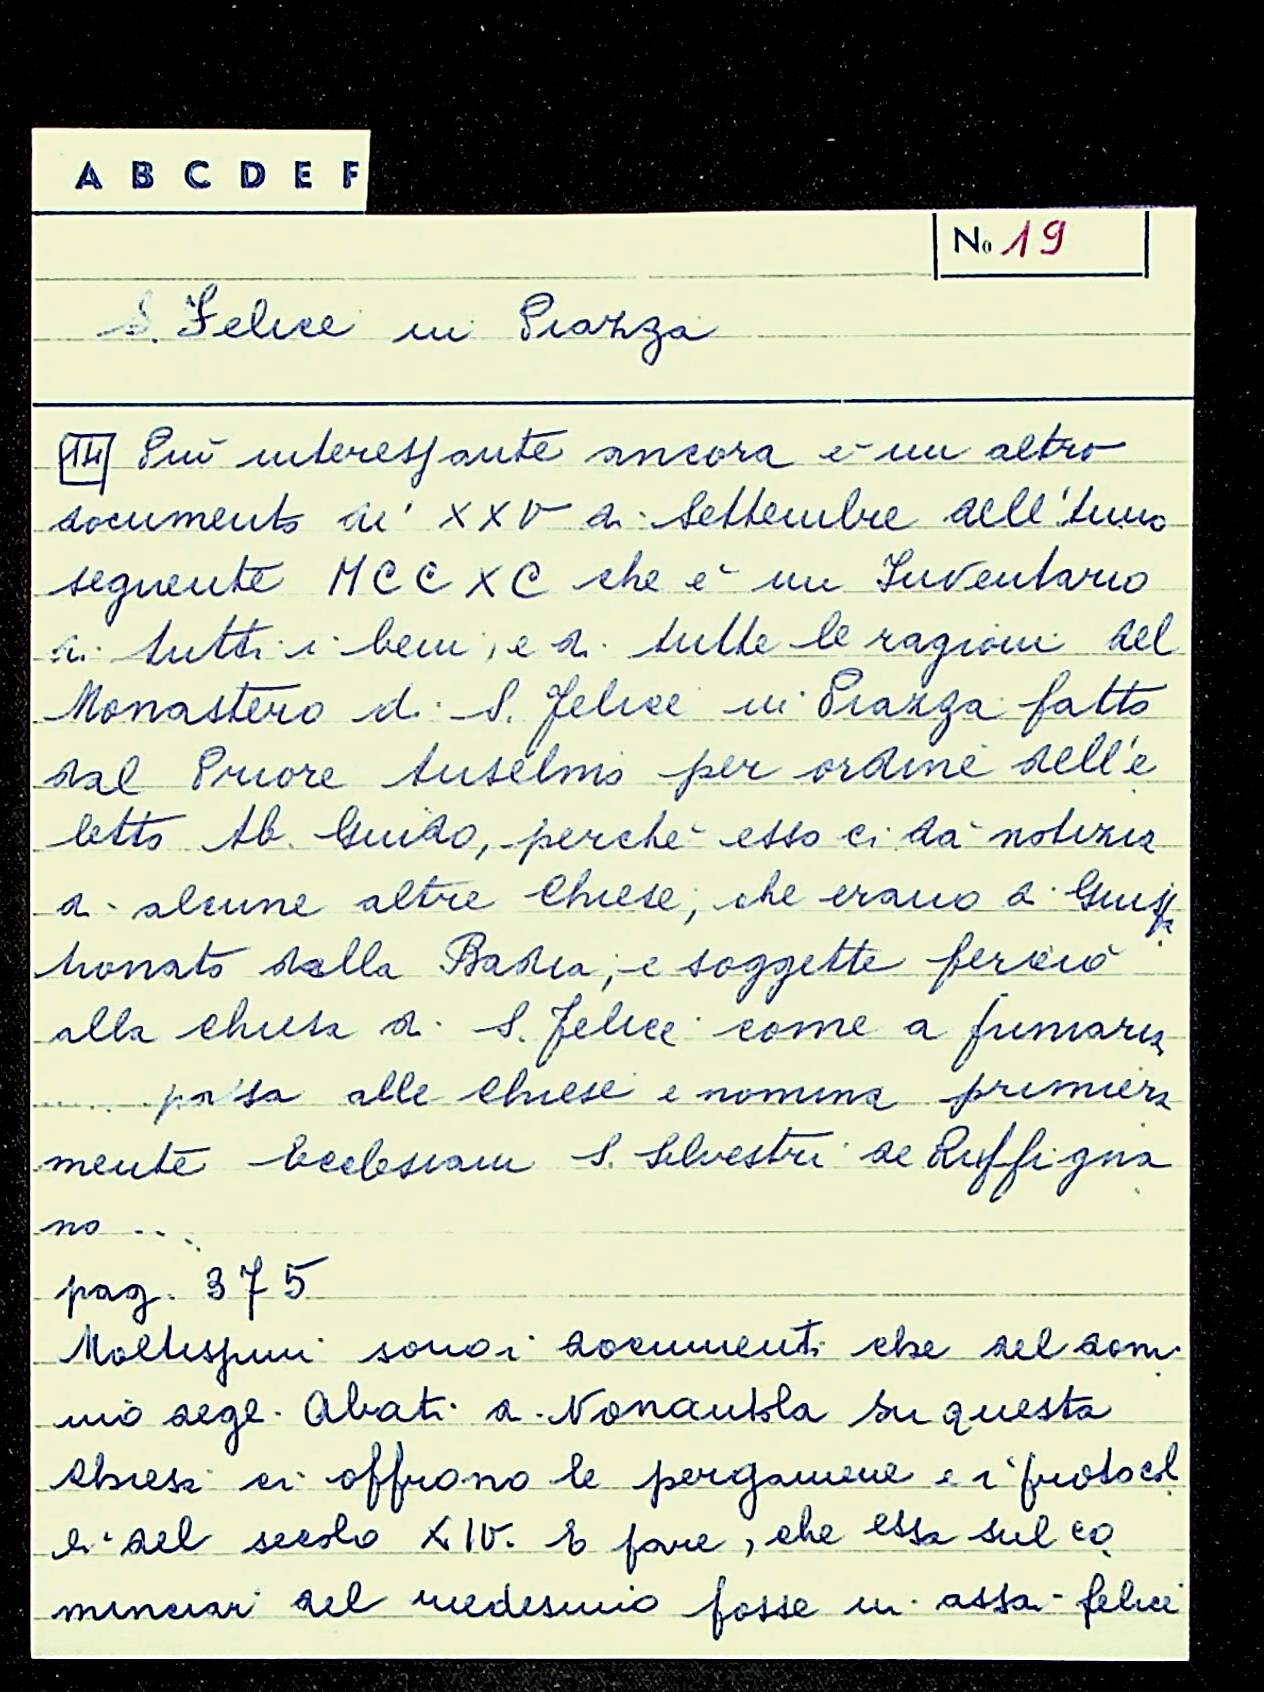 A B C D E F
No 19
S. Felice in Piazza
14 Più interessante ancora è un altro
documento de' XXV di Settembre dell'Anno
seguente MCCXC che è un Inventario
di tutti i beni, e di tutte le ragioni del
Monastero di S. Felice in Piazza fatto
dal Priore Anselmo per ordine dell'e
letto Ab. Guido, perchè esso ci dà notizia
di alcune altre Chiese, che erano di Giuspa
tronato dalla Badia, e soggette perciò
alla chiesa di S. Felice come a primaria
..... passa alle Chiese e nomina primiera
mente Ecclesiam S. Silvestri de Ruffigna
no ...
pag. 375
Moltissimi sono i documenti che del domi
nio degl. Abati di Nonantola su questa
Chiesa ci offrono le pergamene e i protocol
li del secolo XIV. E pare, che essa sul co
minciar del medesimo fosse in assai felice